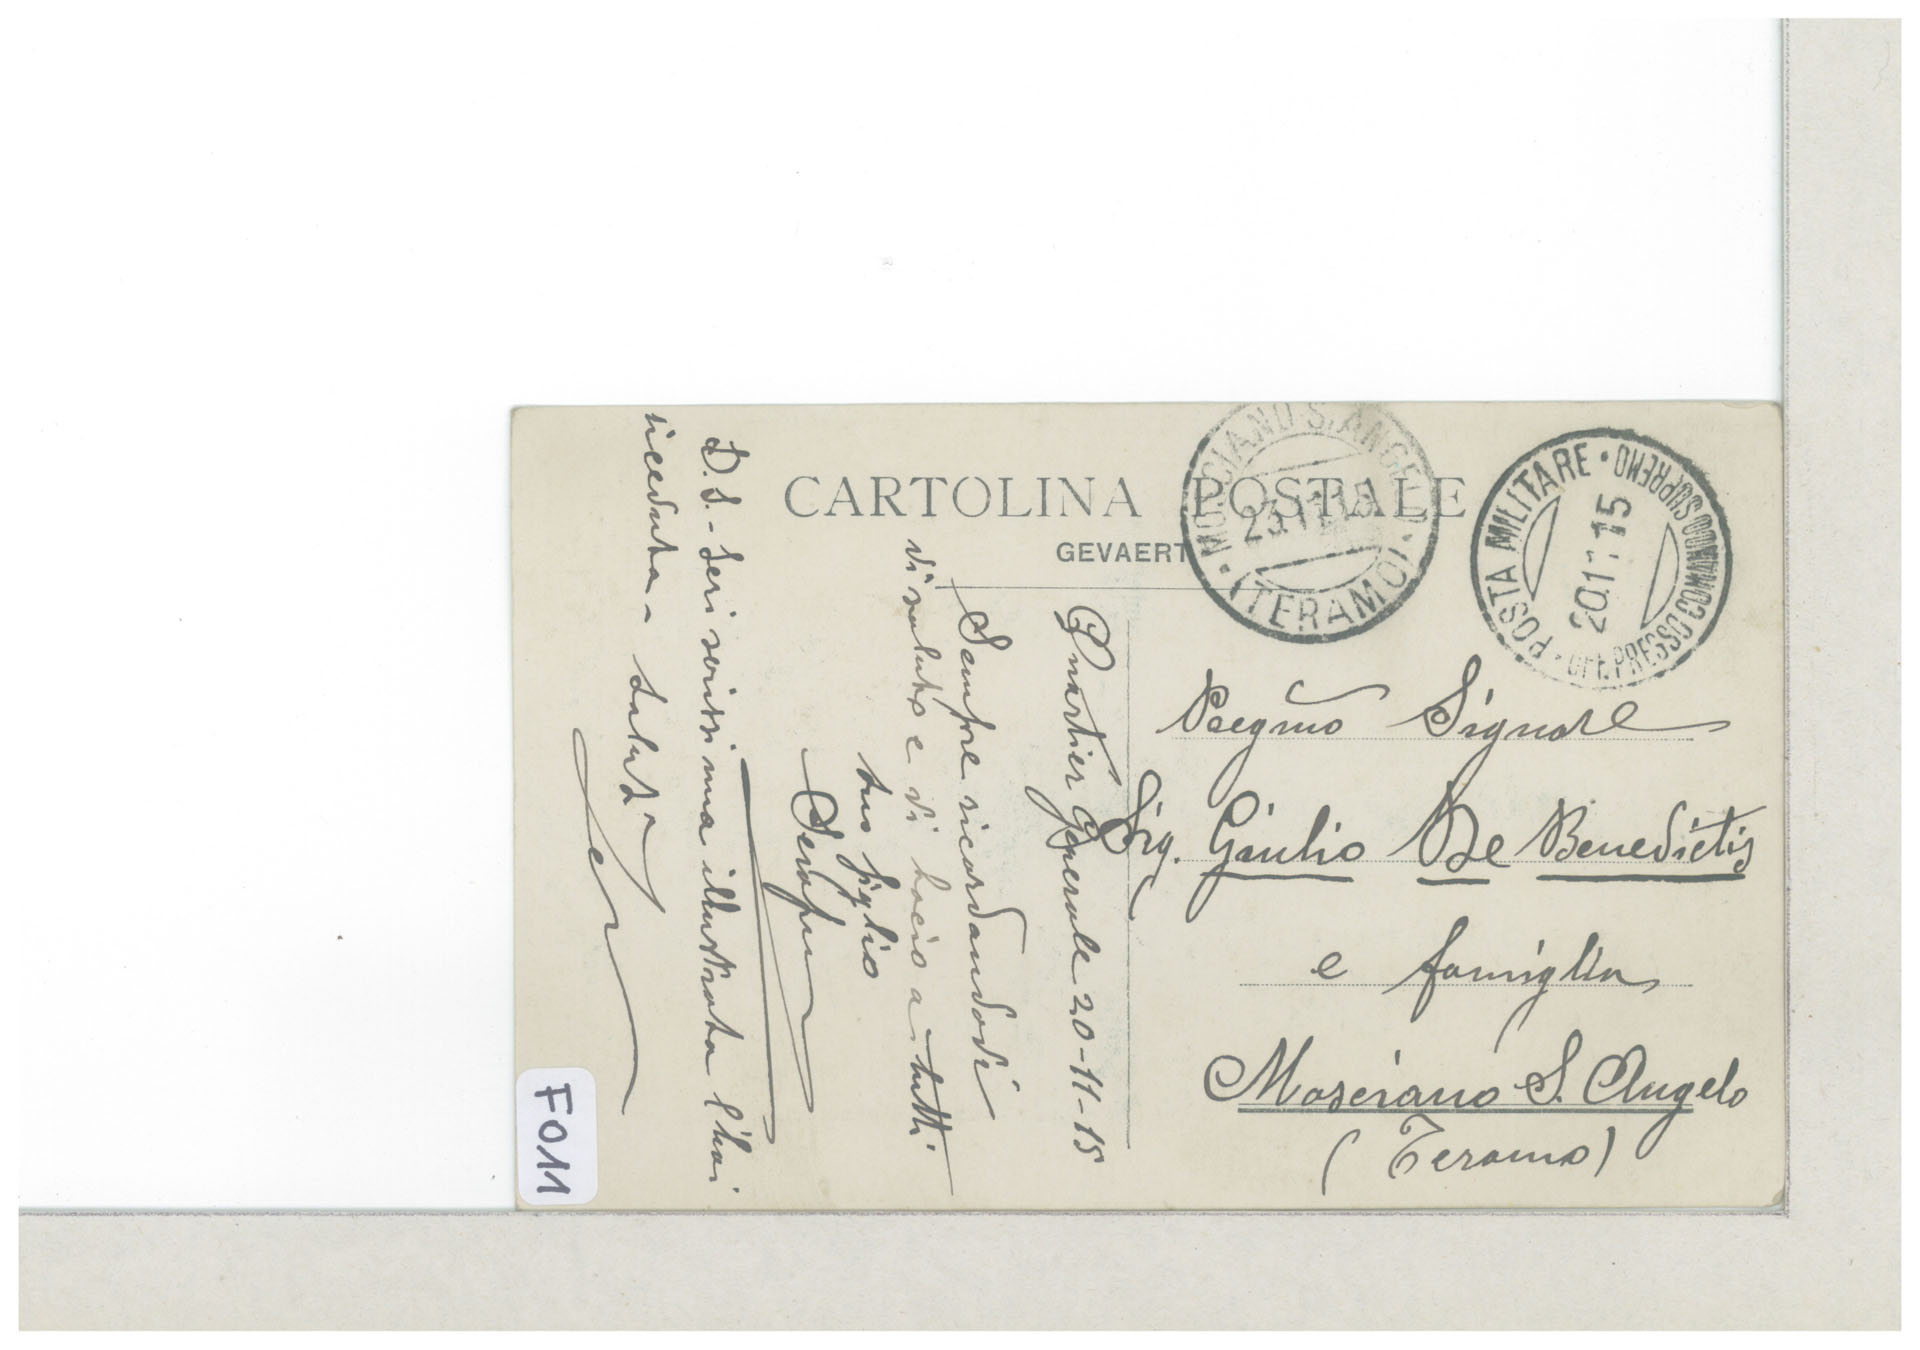 CARTOLINA POSTALE
GEVAERT
MOSCIANO S. ANGELO
23.11.15
(TERAMO)
POSTA MILITARE
20.11.15
UFF. PRESSO COMANDO SUPREMO
Quartier Generale 20-11-15
Sempre ricordandoti
di saluto e di bacio a tutti
tuo figlio
Serafino
D.S. - Ieri scrissi una illustrata l'hai
ricevuta - Saluti
Pregmo Signore
Sig. Giulio De Benedictis
e famiglia
Mosciano S. Angelo
(Teramo)
F011